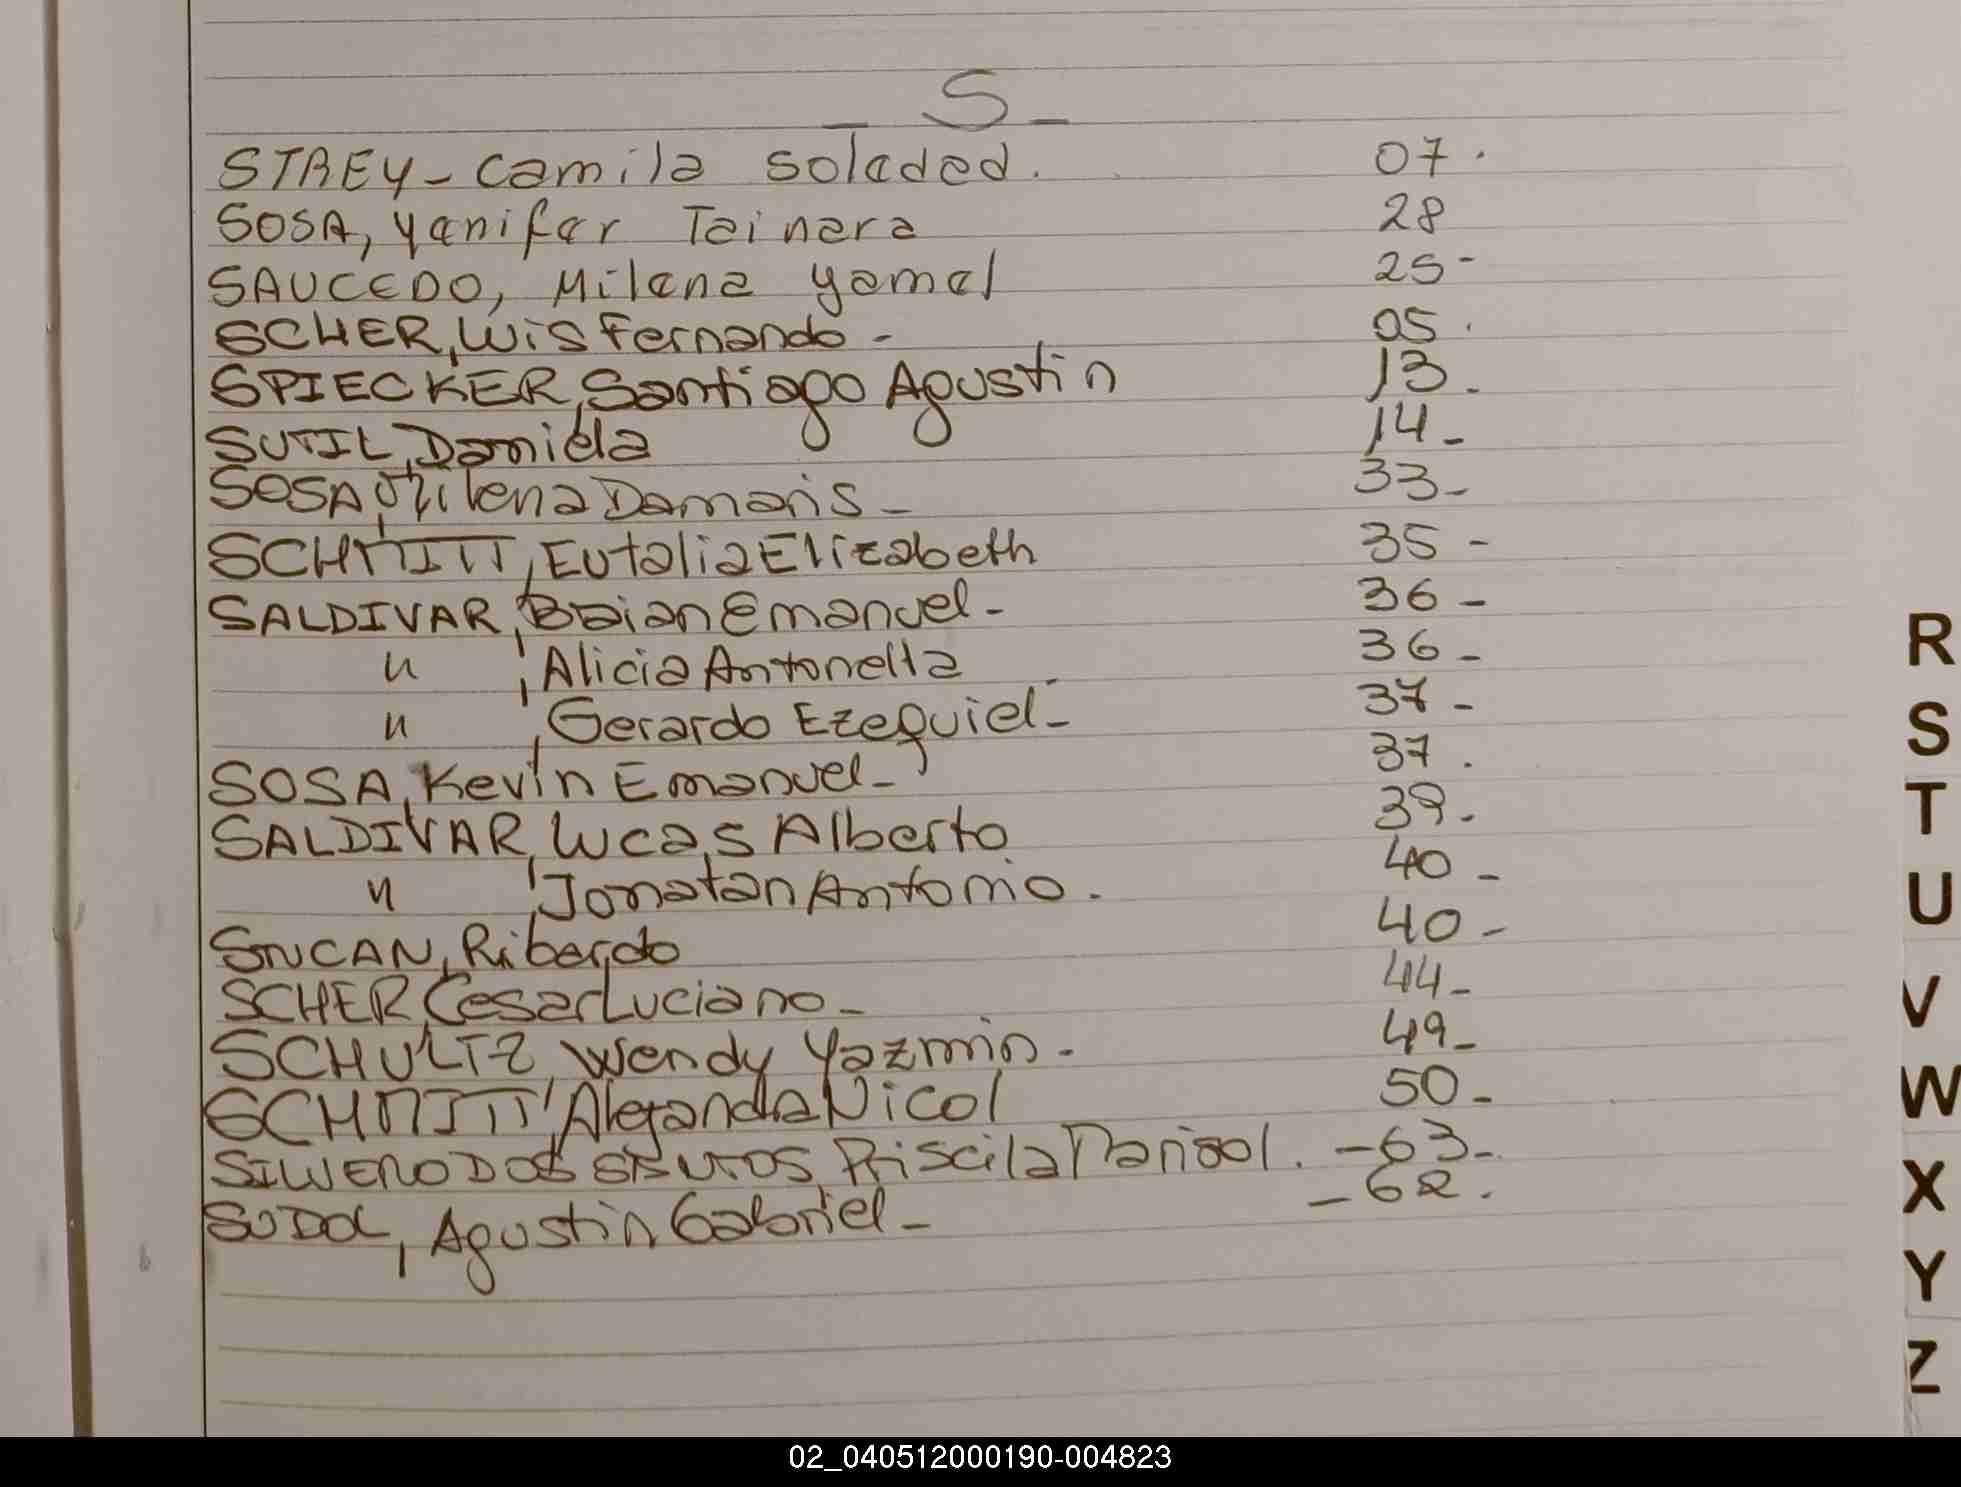 _ S _
STREY - Camila Soledad. 07.
SOSA, Yenifer Tainara 28
SAUCEDO, Milena Yamel 25-
SCHER, Luis Fernando - 05.
SPIECKER, Santiago Agustin 13-
SUTIL, Daniela 14-
SOSA, Milena Damaris - 33-
SCHMITT, Eutalia Elizabeth 35-
SALDIVAR, Brian Emanuel - 36-
" , Alicia Antonella 36-
" , Gerardo Ezequiel - 37-
SOSA, Kevin Emanuel - 37.
SALDIVAR, Lucas Alberto 39-
" , Jonatan Antonio. 40-
Ricardo 40-
SCHER, Cesar Luciano - 44-
SCHULTZ, Wendy Yazmin - 49-
SCHMITT, Alejandra Nicol 50-
DOS Priscila Marisol. - 63-
SODOL, Agustin Gabriel - - 62.
R
S
T
U
V
W
X
Y
Z
02_040512000190-004823